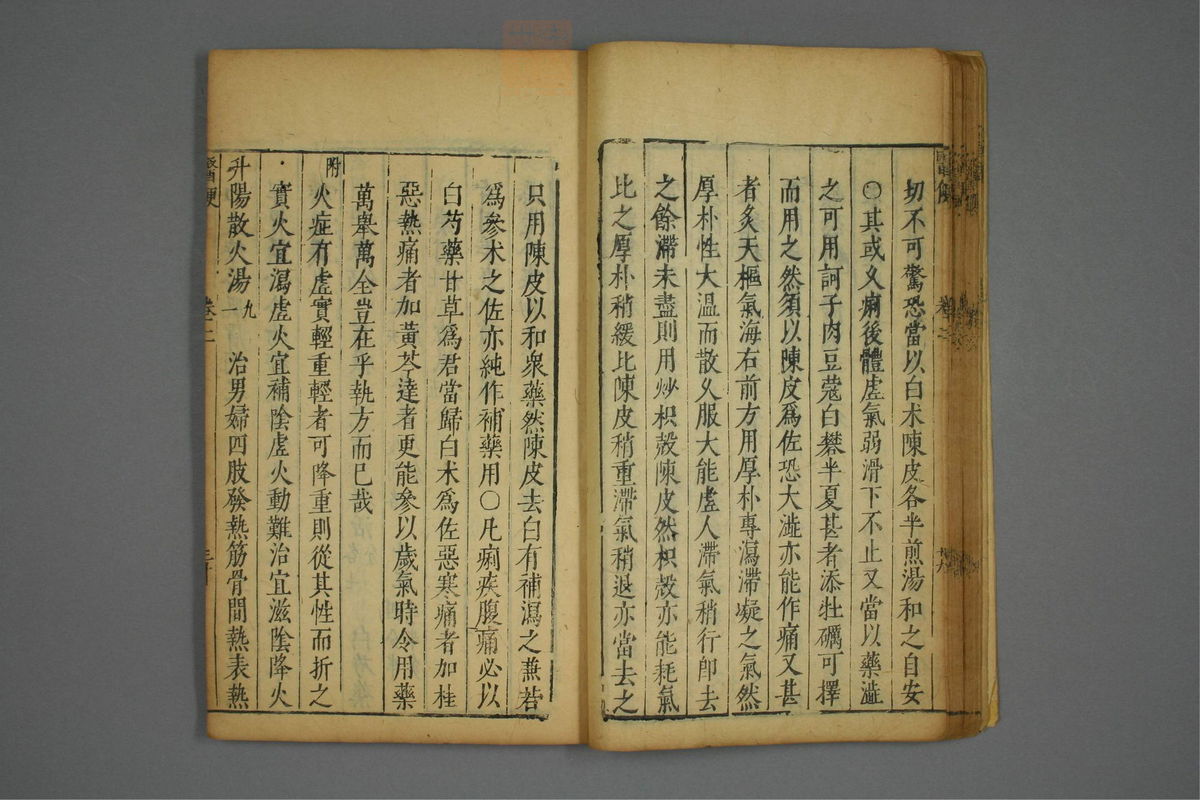 切不可驚恐當以白术陳皮各半煎湯和之自安
○其或久痢後體虛氣弱滑下不止又當以藥澁
之可用訶子肉豆蔻白礬半夏甚者添牡礪可擇
而用之然須以陳皮爲佐恐大澁亦能作痛又甚
者炙天樞氣海右前方用厚朴專瀉滯凝之氣然
厚朴性大温而散久服大能虛人滯氣稍行卽去
之餘滯未盡則用炒枳殼陳皮然枳殼亦能耗氣
比之厚朴稍緩比陳皮稍重滯氣稍退亦當去之
只用陳皮以和衆藥然陳皮去白有補瀉之兼若
爲參术之佐亦純作補藥用○凡痢疾腹痛必以
白芍藥甘草爲君當歸白术爲佐惡寒痛者加桂
惡熱痛者加黃芩達者更能參以歲氣時令用藥
萬舉萬全豈在乎執方而已哉
附 火症有虛實輕重輕者可降重則從其性而折之
實火宜瀉虛火宜補陰虛火動難治宜滋陰降火
升陽散火湯 九一 治男婦四肢發熱筋骨間熱表熱
醫便 卷二 三十